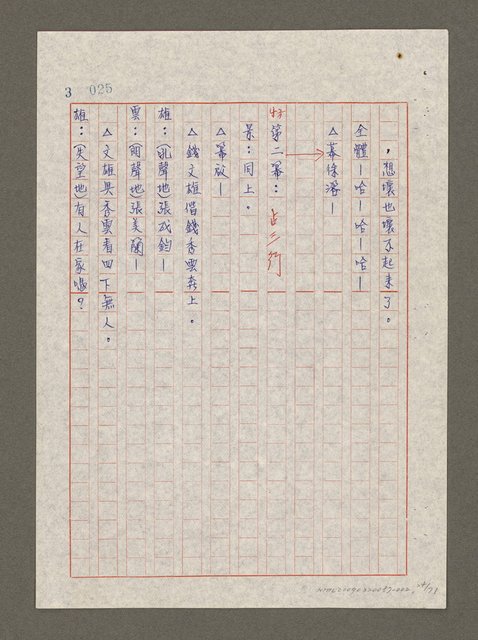 3 025
，想壞也壞不起來了。
全體－哈－哈－哈－
△幕徐落－
特 第二幕： 占三行
景：同上。
△幕啟－
△錢文雄偕錢秀雲奔上。
雄：（吼聲地）張成鈞－
雲：（同聲地）張美蘭－
△文雄與秀雲看四下無人。
雄：（失望地）有人在家嗎？